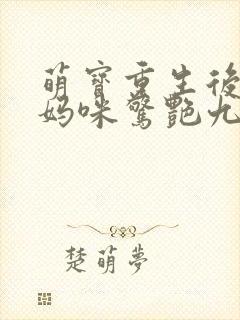 萌寶重生後
媽咪驚艷九
楚萌夢